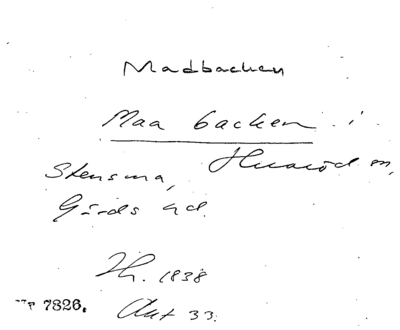 Madbacken
Maa backen i
Stensma, Huaröd sn,
Gärds hd.
Lh. 1838
7826. Akt 33.